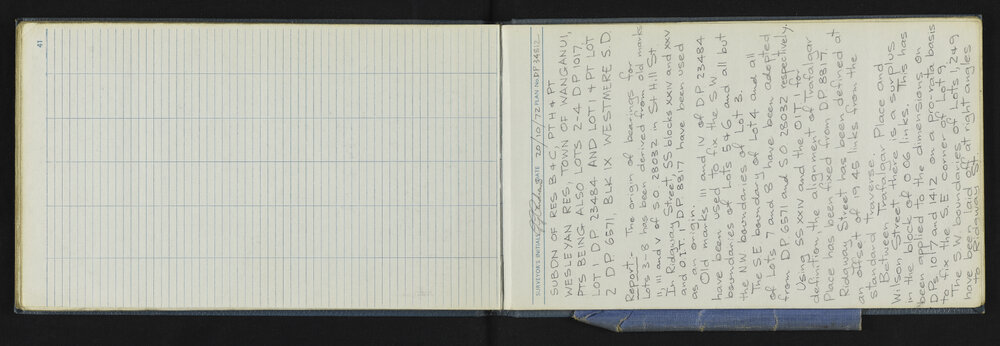 41
SURVEYOR'S INITIALS DATE 20/10/72 PLAN No. DP 34812
SUBDN OF RES B & C, PT H & PT
WESLEYAN RES, TOWN OF WANGANUI,
PTS BEING ALSO LOTS 2-4 DP 1017,
LOT 1 DP 23484 AND LOT 1 & PT LOT
2 DP 6571, BLK IX WESTMERE S.D.
Report - The origin of bearings for
Lots 3-8 has been derived from old marks
II, III and V of SO 28032 in St Hill St
In Ridgway Street, SS blocks XXIV and XXV
and O.I.T. 1 DP 8817 have been used
as an origin.
Old marks III and IV of DP 23484
have been used to fix the S.W.
boundaries of Lots 5 & 6 and all but
the NW boundaries of Lot 3.
The SE boundary of Lot 4 and all
of Lots 7 and 8 have been adopted
from DP 6571 and SO 28032 respectively.
Using SS XXIV and the OIT 1 for
definition, the alignment of Trafalgar
Place has been fixed from DP 8817.
Ridgway Street has been defined at
an offset of 19.45 links from the
standard traverse.
Between Trafalgar Place and
Wilson Street there is a surplus
in the block of 0.06 links. This has
been applied to the dimensions on
DPs 1017 and 1412 on a pro-rata basis
to fix the SE corner of Lot 9
The S.W boundaries of Lots 1, 2 & 9
have been laid off at right angles
to Ridgway St